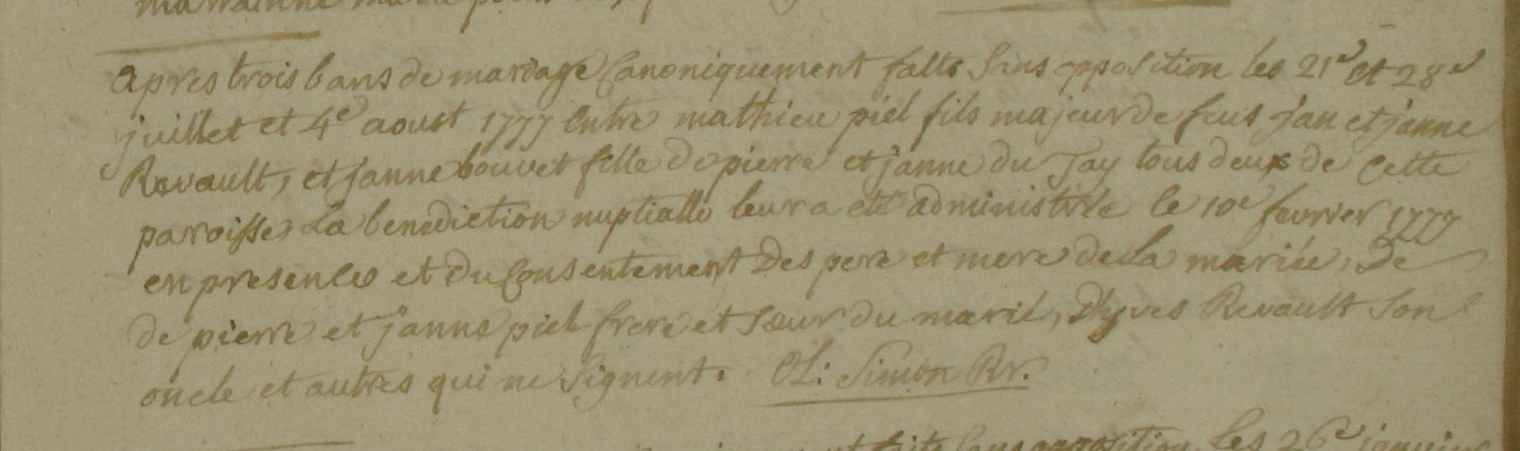 apres trois bans de mariage Canoniquement faits sans opposition les 21e et 28e
juillet et 4e aoust 1777 entre mathieu piel fils majeur de feus jan et janne
Revault, et janne bouvet fille de pierre et janne du Tay tous deux de cette
paroisse, La benediction nuptialle leur a eté administrée le 10e fevrier 1777
en presence et du Consentement Des pere et mere de la mariée, De
de pierre et janne piel frere et sœur du marié, D'yves Revault son
oncle et autres qui ne signent. OL: Simon Rr.
sans opposition les 26e janvier